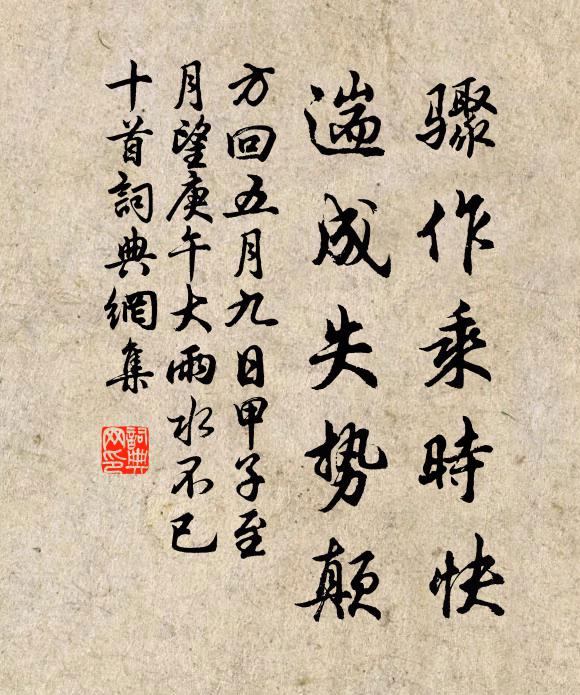 驟作乘時快
遄成失勢顛
方回五月九日甲子至
月望庚午大雨水不已
十首詞典網集
詞典
网印